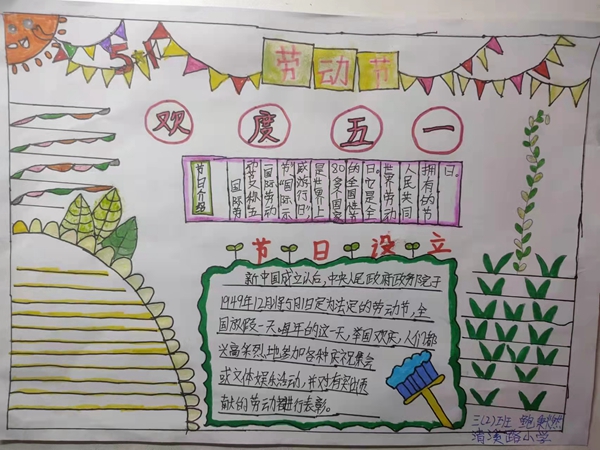 5·1
劳动节
欢度五一
节日介绍
国际劳
动节又称五
国际劳动
节“国际示
威游行日”
是世界上
80多个国家
的全国性节
日。它是全
世界劳动
人民共同
拥有的节
日。
节日设立
新中国成立以后，中央人民政府政务院于
1949年12月将5月1日定为法定的劳动节，全
国放假一天。每年的这一天，举国欢庆，人们都
兴高采烈地参加各种庆祝集会
或文体娱乐活动，并对有突出贡
献的劳动者进行表彰。
三(2)班 鲍
清溪路小学